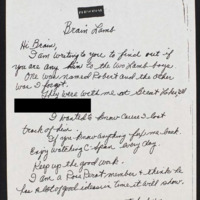 Brain Lamb
Hi Brain,
I am writing to you to find out if
you are any kin to the two Lamb boys
One was named Robert and the other
was I forgot.
They were with me at Great Lakes Ill
I wanted to know cause I lost
track of him.
If you know anything pls me back.
Enjoy watching C Span every day.
Keep up the good work.
I am a Ross Perot member & thanks he
has a lot of good ideas in time it will show.